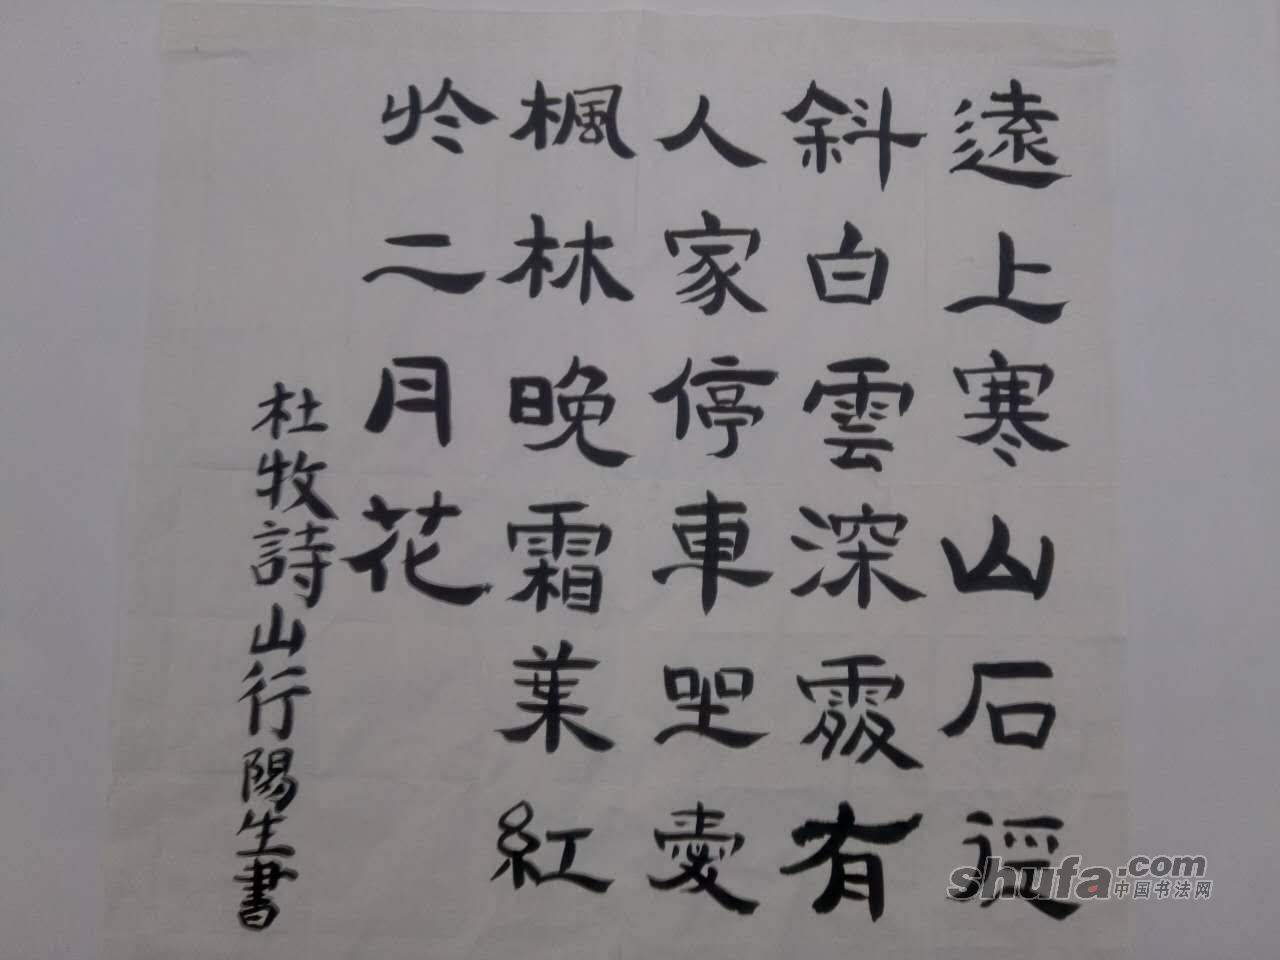 遠上寒山石徑
斜白雲深處有
人家停車坐愛
楓林晚霜葉紅
於二月花
杜牧詩山行陽生書
shufa.com
中国书法网